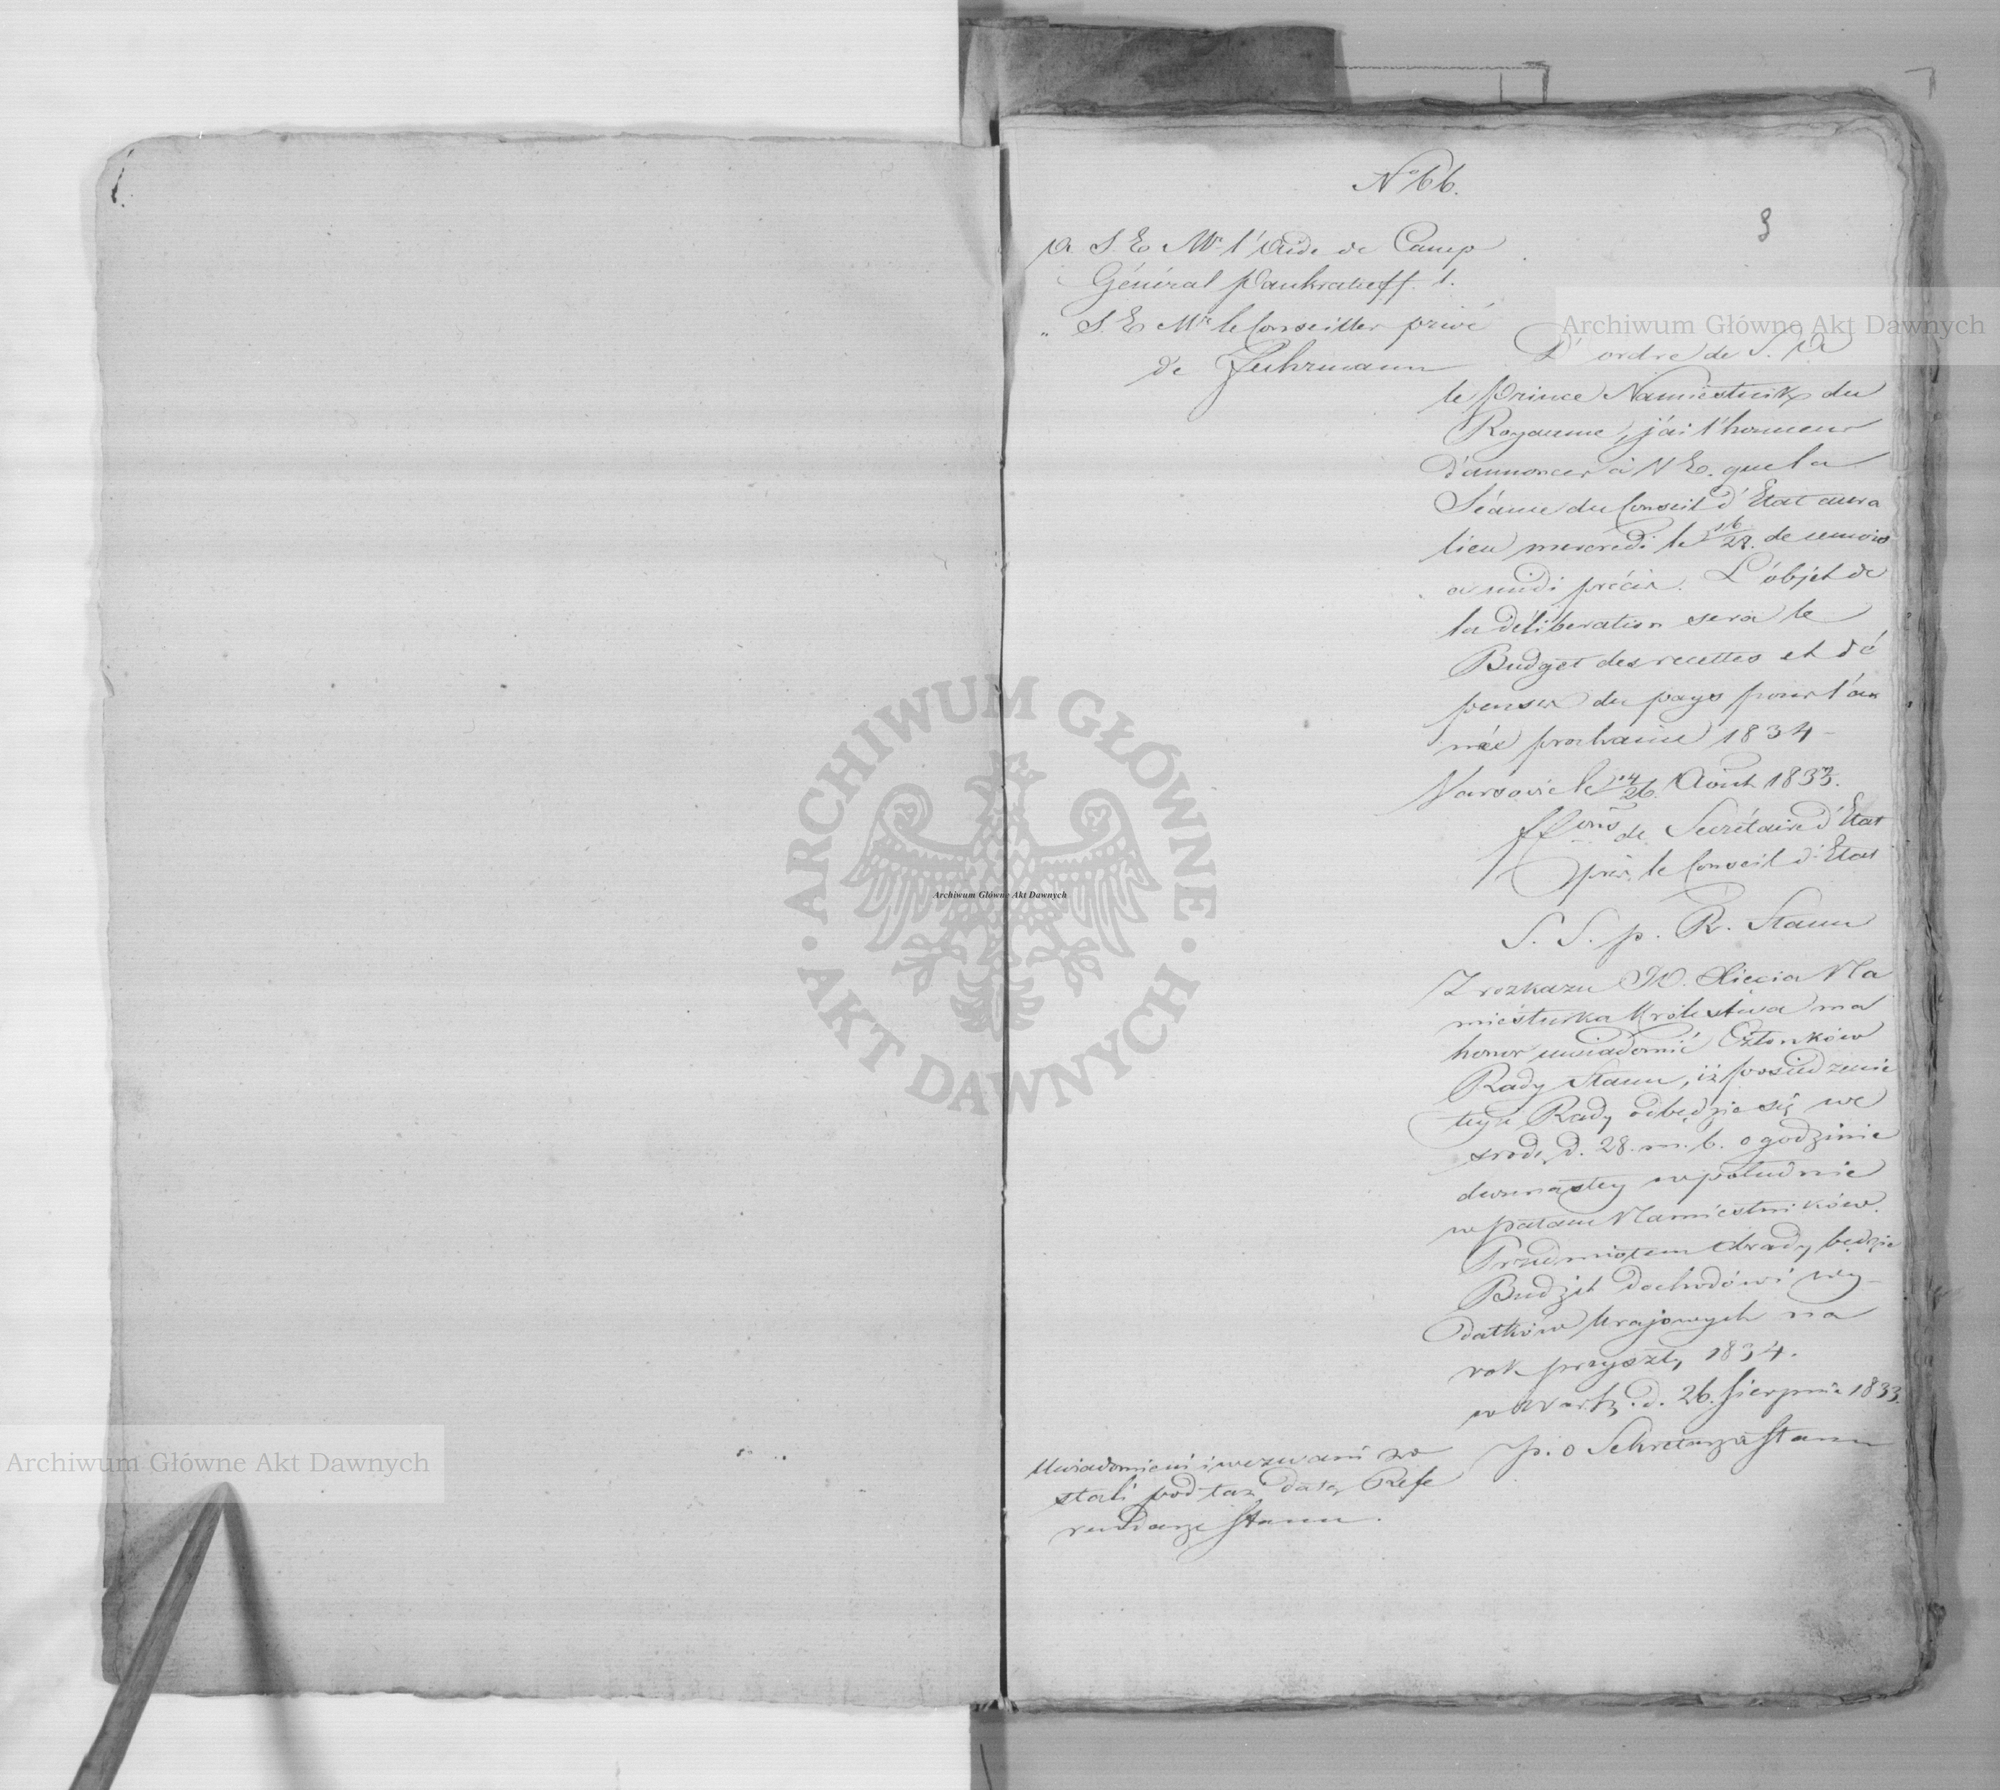 No 66.
3
A S. E. Mr. l'Aide de Camp
Général Pankratieff. 1.
„ S. E. Mr. le Conseiller privé
de Fuhrmann
D'ordre de S. A
le Prince Namiestnik du
Royaume, j'ai l'honneur
d'annoncer à V. E. que la
Séance du Conseil d'Etat aura
lieu mercredi le 16/28. de ce mois
a midi précis. L'objet de
la déliberation sera le
Budget des recettes et dé
penses du pays pour l'an
née prochaine 1834 –
Varsovie le 14/26. Août 1833.
ffons de Secrétaire d'Etat
près le Conseil d'Etat
S. S. p. R. Stanu
Z rozkazu JO. Xiecia Na
miestnika Królestwa ma
honor uwiadomić Członków
Rady Stanu, iż posiedzenie
teyże Rady odbędzie się we
srodę d. 28. m. b. o godzinie
dwunastey w południe
w pałacu Namiestników.
Przedmiotem obrady będzie
Budżet dochodów i wy-
datków krajowych na
rok przyszły 1834.
w Warsz. d. 26. Sierpnia 1833.
p. o Sekretarza Stanu
Uwiadomieni i wezwani zo
stali pod taż datą Refe
rendarze Stanu.
Archiwum Główne Akt Dawnych
Archiwum Główne Akt Dawnych
Archiwum Główne Akt Dawnych
ARCHIWUM GŁÓWNE · AKT DAWNYCH ·